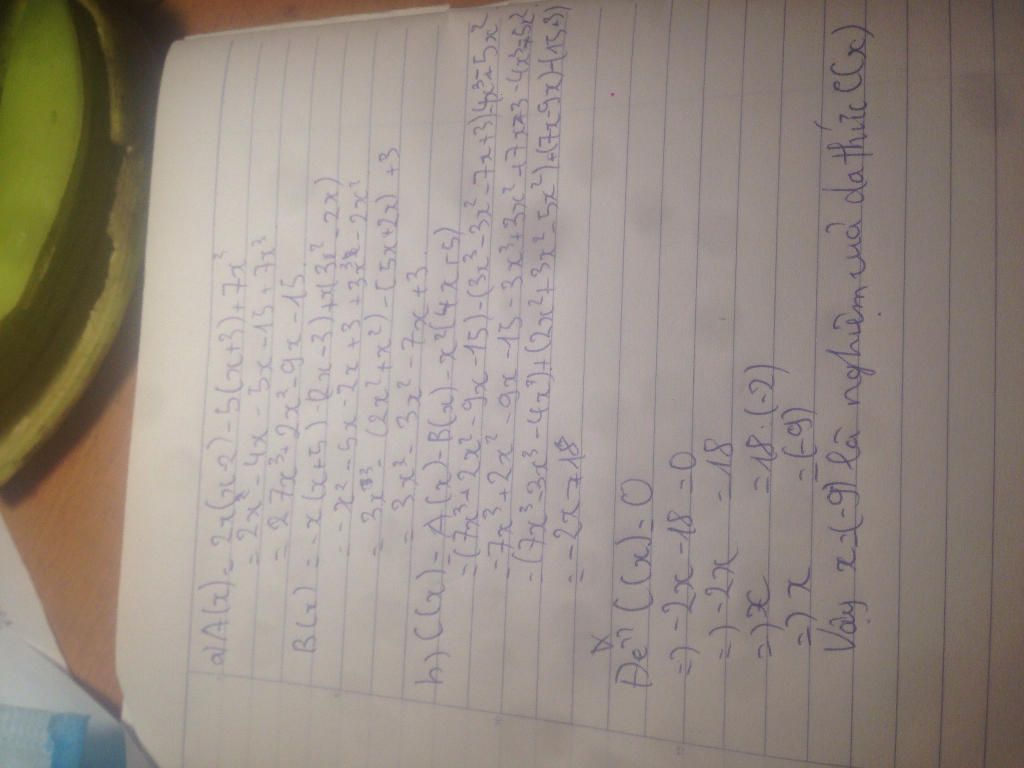 a) A(x) = 2x(x-2) - 5(x+3) + 7x³
= 2x² - 4x - 5x - 15 + 7x³
= 7x³ + 2x² - 9x - 15
B(x) = -x(x+5) - (2x-3) + (3x³ - 2x²)
= -x² - 5x - 2x + 3 + 3x³ - 2x²
= 3x³ - (2x² + x²) - (5x + 2x) + 3
= 3x³ - 3x² - 7x + 3
b) C(x) = A(x) - B(x) - x²(4x+5)
= (7x³ + 2x² - 9x - 15) - (3x³ - 3x² - 7x + 3) - 4x³ - 5x²
= 7x³ + 2x² - 9x - 15 - 3x³ + 3x² + 7x - 3 - 4x³ - 5x²
= (7x³ - 3x³ - 4x³) + (2x² + 3x² - 5x²) + (7x - 9x) + (-15-3)
= -2x - 18
Để C(x) = 0
=) -2x - 18 = 0
=) -2x = 18
=) x = 18 : (-2)
=) x = (-9)
Vậy x = (-9) là nghiệm của đa thức C(x)